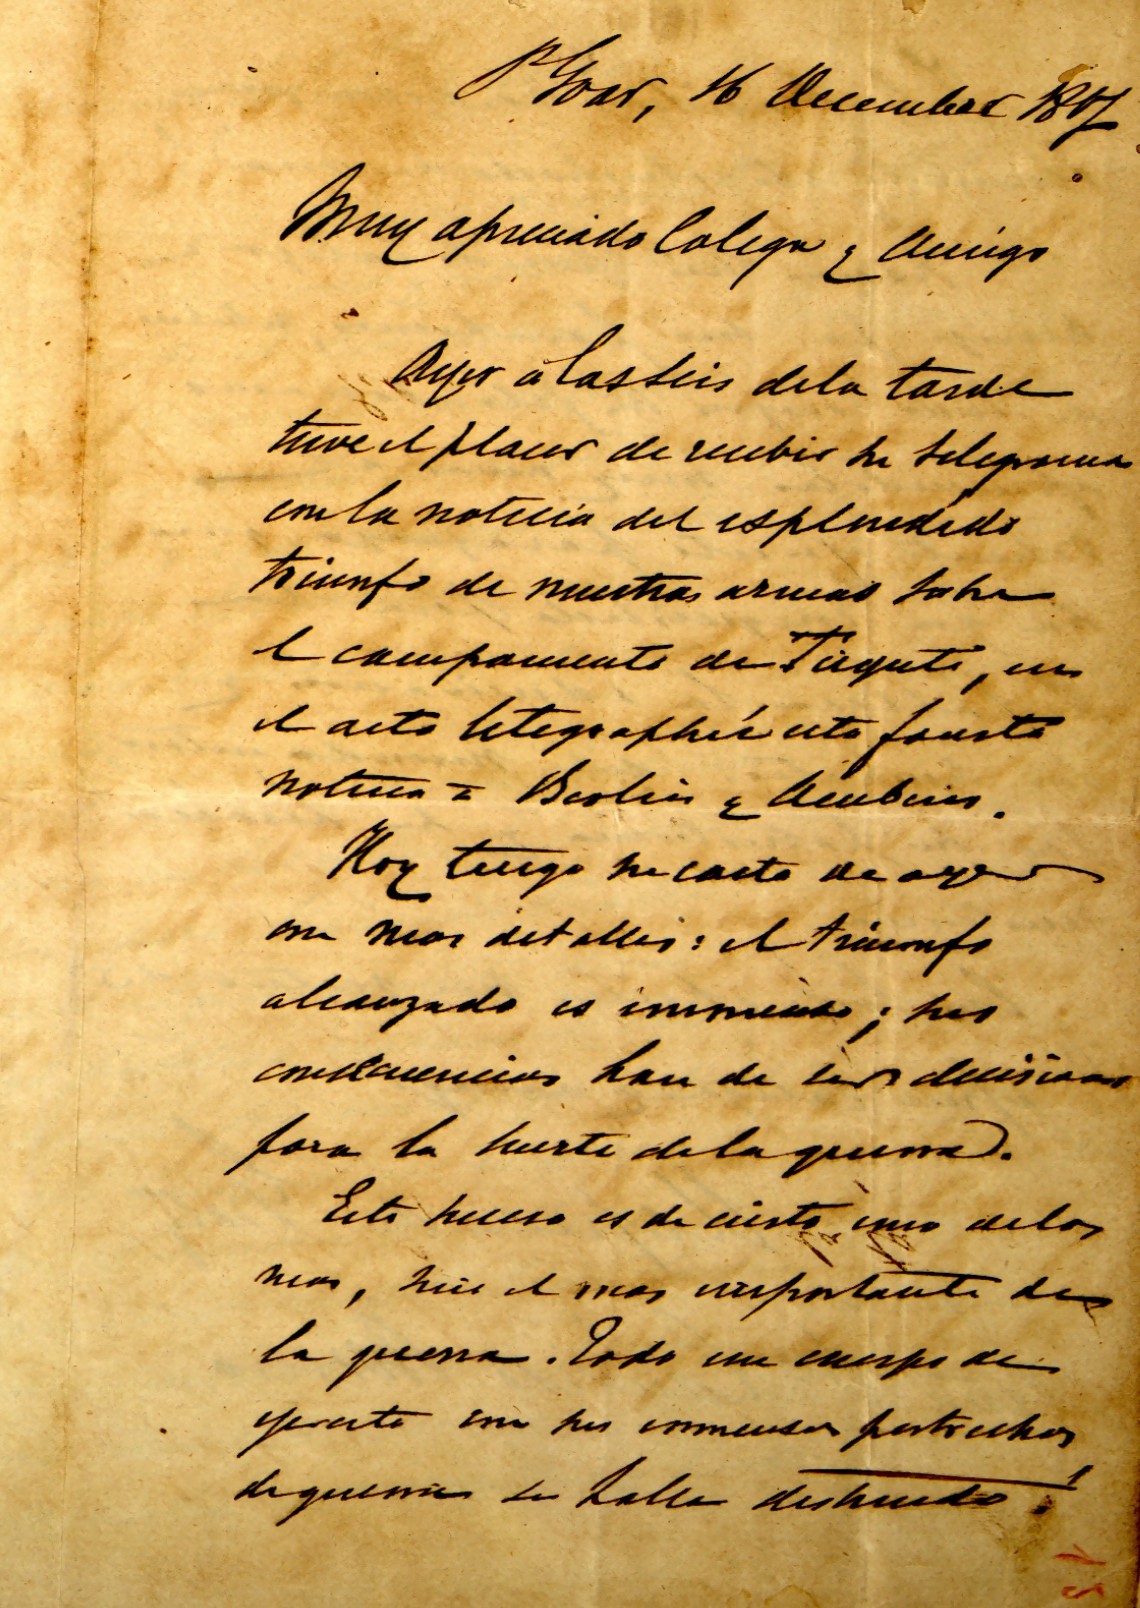 St Goar, 16 Decembre 18
Muy apreciado Colega y Amigo
Ayer a las seis de la tarde
tuve el placer de recibir su telegrama
con la noticia del esplendido
triunfo de nuestras armas sobre
el campamento de Tuyuti, en
el acto telegraphié esta fausta
noticia a Berlin y Amberes.
Hoy tengo su carta de ayer
con mas detalles: el triunfo
alcanzado es immenso; sus
consecuencias han de ser decisivas
para la suerte de la guerra.
Este suceso es de cierto uno de los
mas, sino el mas importante de
la guerra. Todo un cuerpo de
ejercito con sus immensos pertrechos
de guerra se halla destruido!